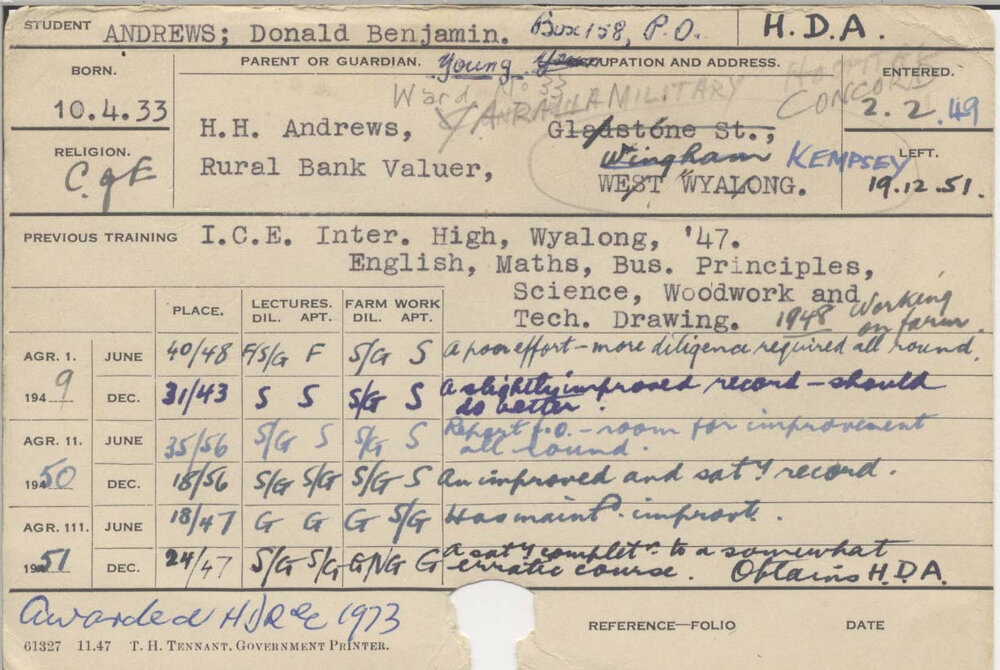 STUDENT ANDREWS; Donald Benjamin. Box 158, P.O. H.D.A.
BORN. PARENT OR GUARDIAN. Young OCCUPATION AND ADDRESS. ENTERED.
Ward No 33 YARALLA MILITARY HOSPITAL CONCORD
10.4.33 H.H. Andrews, Gladstone St., 2.2.49
RELIGION. Wingham KEMPSEY LEFT.
C of E Rural Bank Valuer, WEST WYALONG. 19.12.51.
PREVIOUS TRAINING I.C.E. Inter. High, Wyalong, '47.
English, Maths, Bus. Principles,
Science, Woodwork and
Tech. Drawing. 1948 Working on farm.
PLACE. LECTURES. FARM WORK
DIL. APT. DIL. APT.
AGR. 1. JUNE 40/48 F/S/G F S/G S A poor effort - more diligence required all round.
1949 DEC. 31/43 S S S/G S A slightly improved record - should
do better.
AGR. 11. JUNE 35/56 S/G S S/G S Report f.o. - room for improvement
all round.
1950 DEC. 18/56 S/G S/G S/G S An improved and saty record.
AGR. 111. JUNE 18/47 G G G S/G Has maintd. improvt.
1951 DEC. 24/47 S/G S/G G/VG G A saty completn to a somewhat
erratic course. Obtains H.D.A.
Awarded 1973
REFERENCE—FOLIO DATE
61327 11.47 T. H. TENNANT, GOVERNMENT PRINTER.